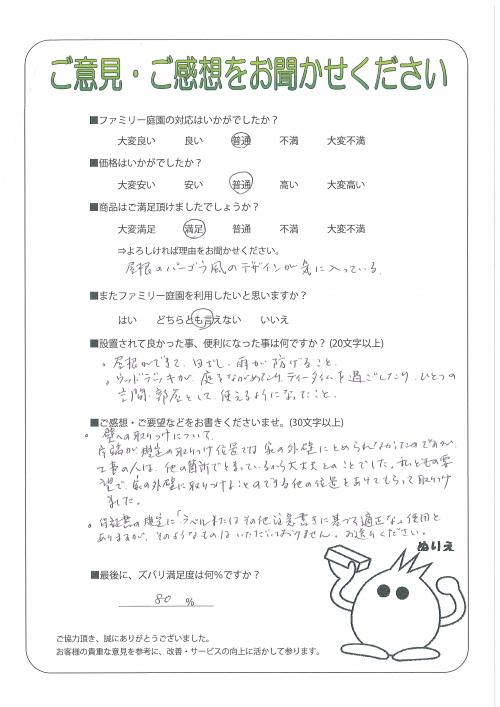 ご意見・ご感想をお聞かせください
■ファミリー庭園の対応はいかがでしたか？
大変良い 良い 普通 不満 大変不満
■価格はいかがでしたか？
大変安い 安い 普通 高い 大変高い
■商品はご満足頂けましたでしょうか？
大変満足 満足 普通 不満 大変不満
⇒よろしければ理由をお聞かせください。
屋根のパーゴラ風のデザインが気に入っている。
■またファミリー庭園を利用したいと思いますか？
はい どちらとも言えない いいえ
■設置されて良かった事、便利になった事は何ですか？（20文字以上）
。屋根ができて、日ざし、雨が防げること。
。ウッドデッキが、庭をながめたり、ティータイムを過ごしたり、ひとつの
空間・部屋として、使えるようになったこと。
■ご感想・ご要望などをお書きくださいませ。（30文字以上）
。壁への取りつけについて、
片端が規定の取りつけ位置では家の外壁にとめられなかったのですが、
工事の人は、他の箇所でとまっているから大丈夫とのことでした。私どもの要
望で、家の外壁に取りつけることのできる他の位置とあわせてもらって取りつけ
ました。
。保証書の規定に「ラベルまたはその他注意書きに基づく適正な」使用と
ありますが、そのようなものはいただいておりません。お送りください。
ぬりえ
■最後に、ズバリ満足度は何%ですか？
80 %
ご協力頂き、誠にありがとうございました。
お客様の貴重な意見を参考に、改善・サービスの向上に活かして参ります。